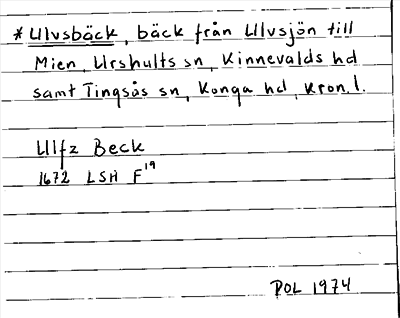 * Ulvsbäck, bäck från Ulvsjön till
Mien, Urshults sn, Kinnevalds hd
samt Tingsås sn, Konga hd, Kron. l.
Ulfz Beck
1672 LSH F19
POL 1974